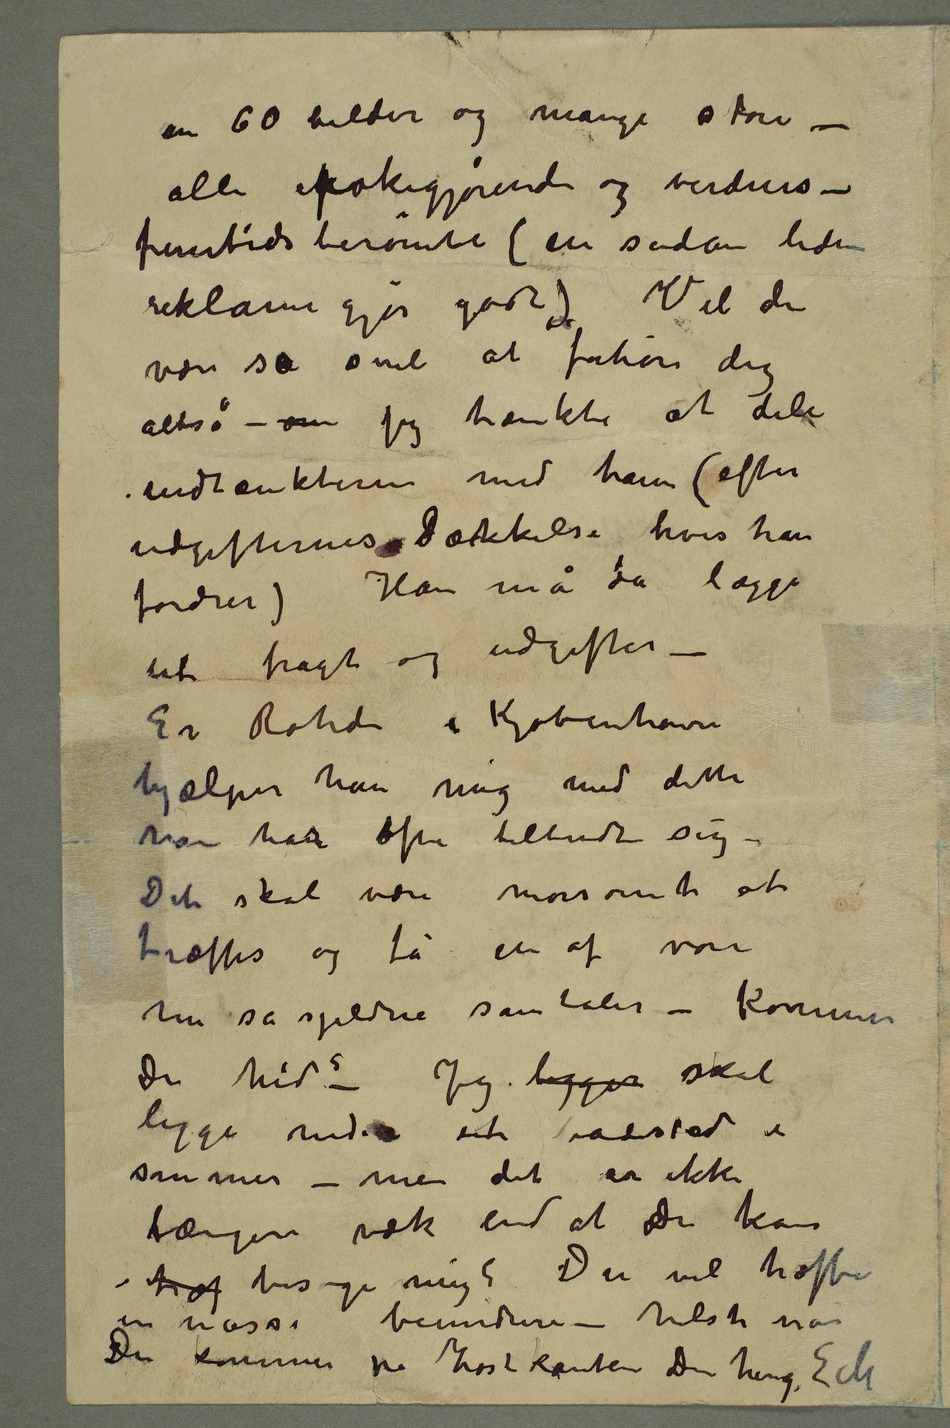 en 60 billeder og mange store –
alle epokegjørende og verdens –
fremtidsberømte (en sådan liden
reklame gjør godt) Vil du
være så snil at forhøre dig
altså – om jeg tænkte at dele
indtægterne med ham (efter
udgifternes Dækkelse hvis han
fordrer) Han må da lægge
ut fragt og udgifter –
Er Rohde i Kjøbenhavn
hjælper han mig med dette
han har ofte tilbudt sig –
Det skal være morsomt at
træffes og få en af vore
nu så sjeldne samtaler – Kommer
Du hid? – Jeg ligger skal
ligge ved et badested i
sommer – men det er ikke
længere væk end at Du kan
besøge mig? Du vil træffe
en masse beundrere – helst når
Du kommer på Høstkanten Din heng. EM